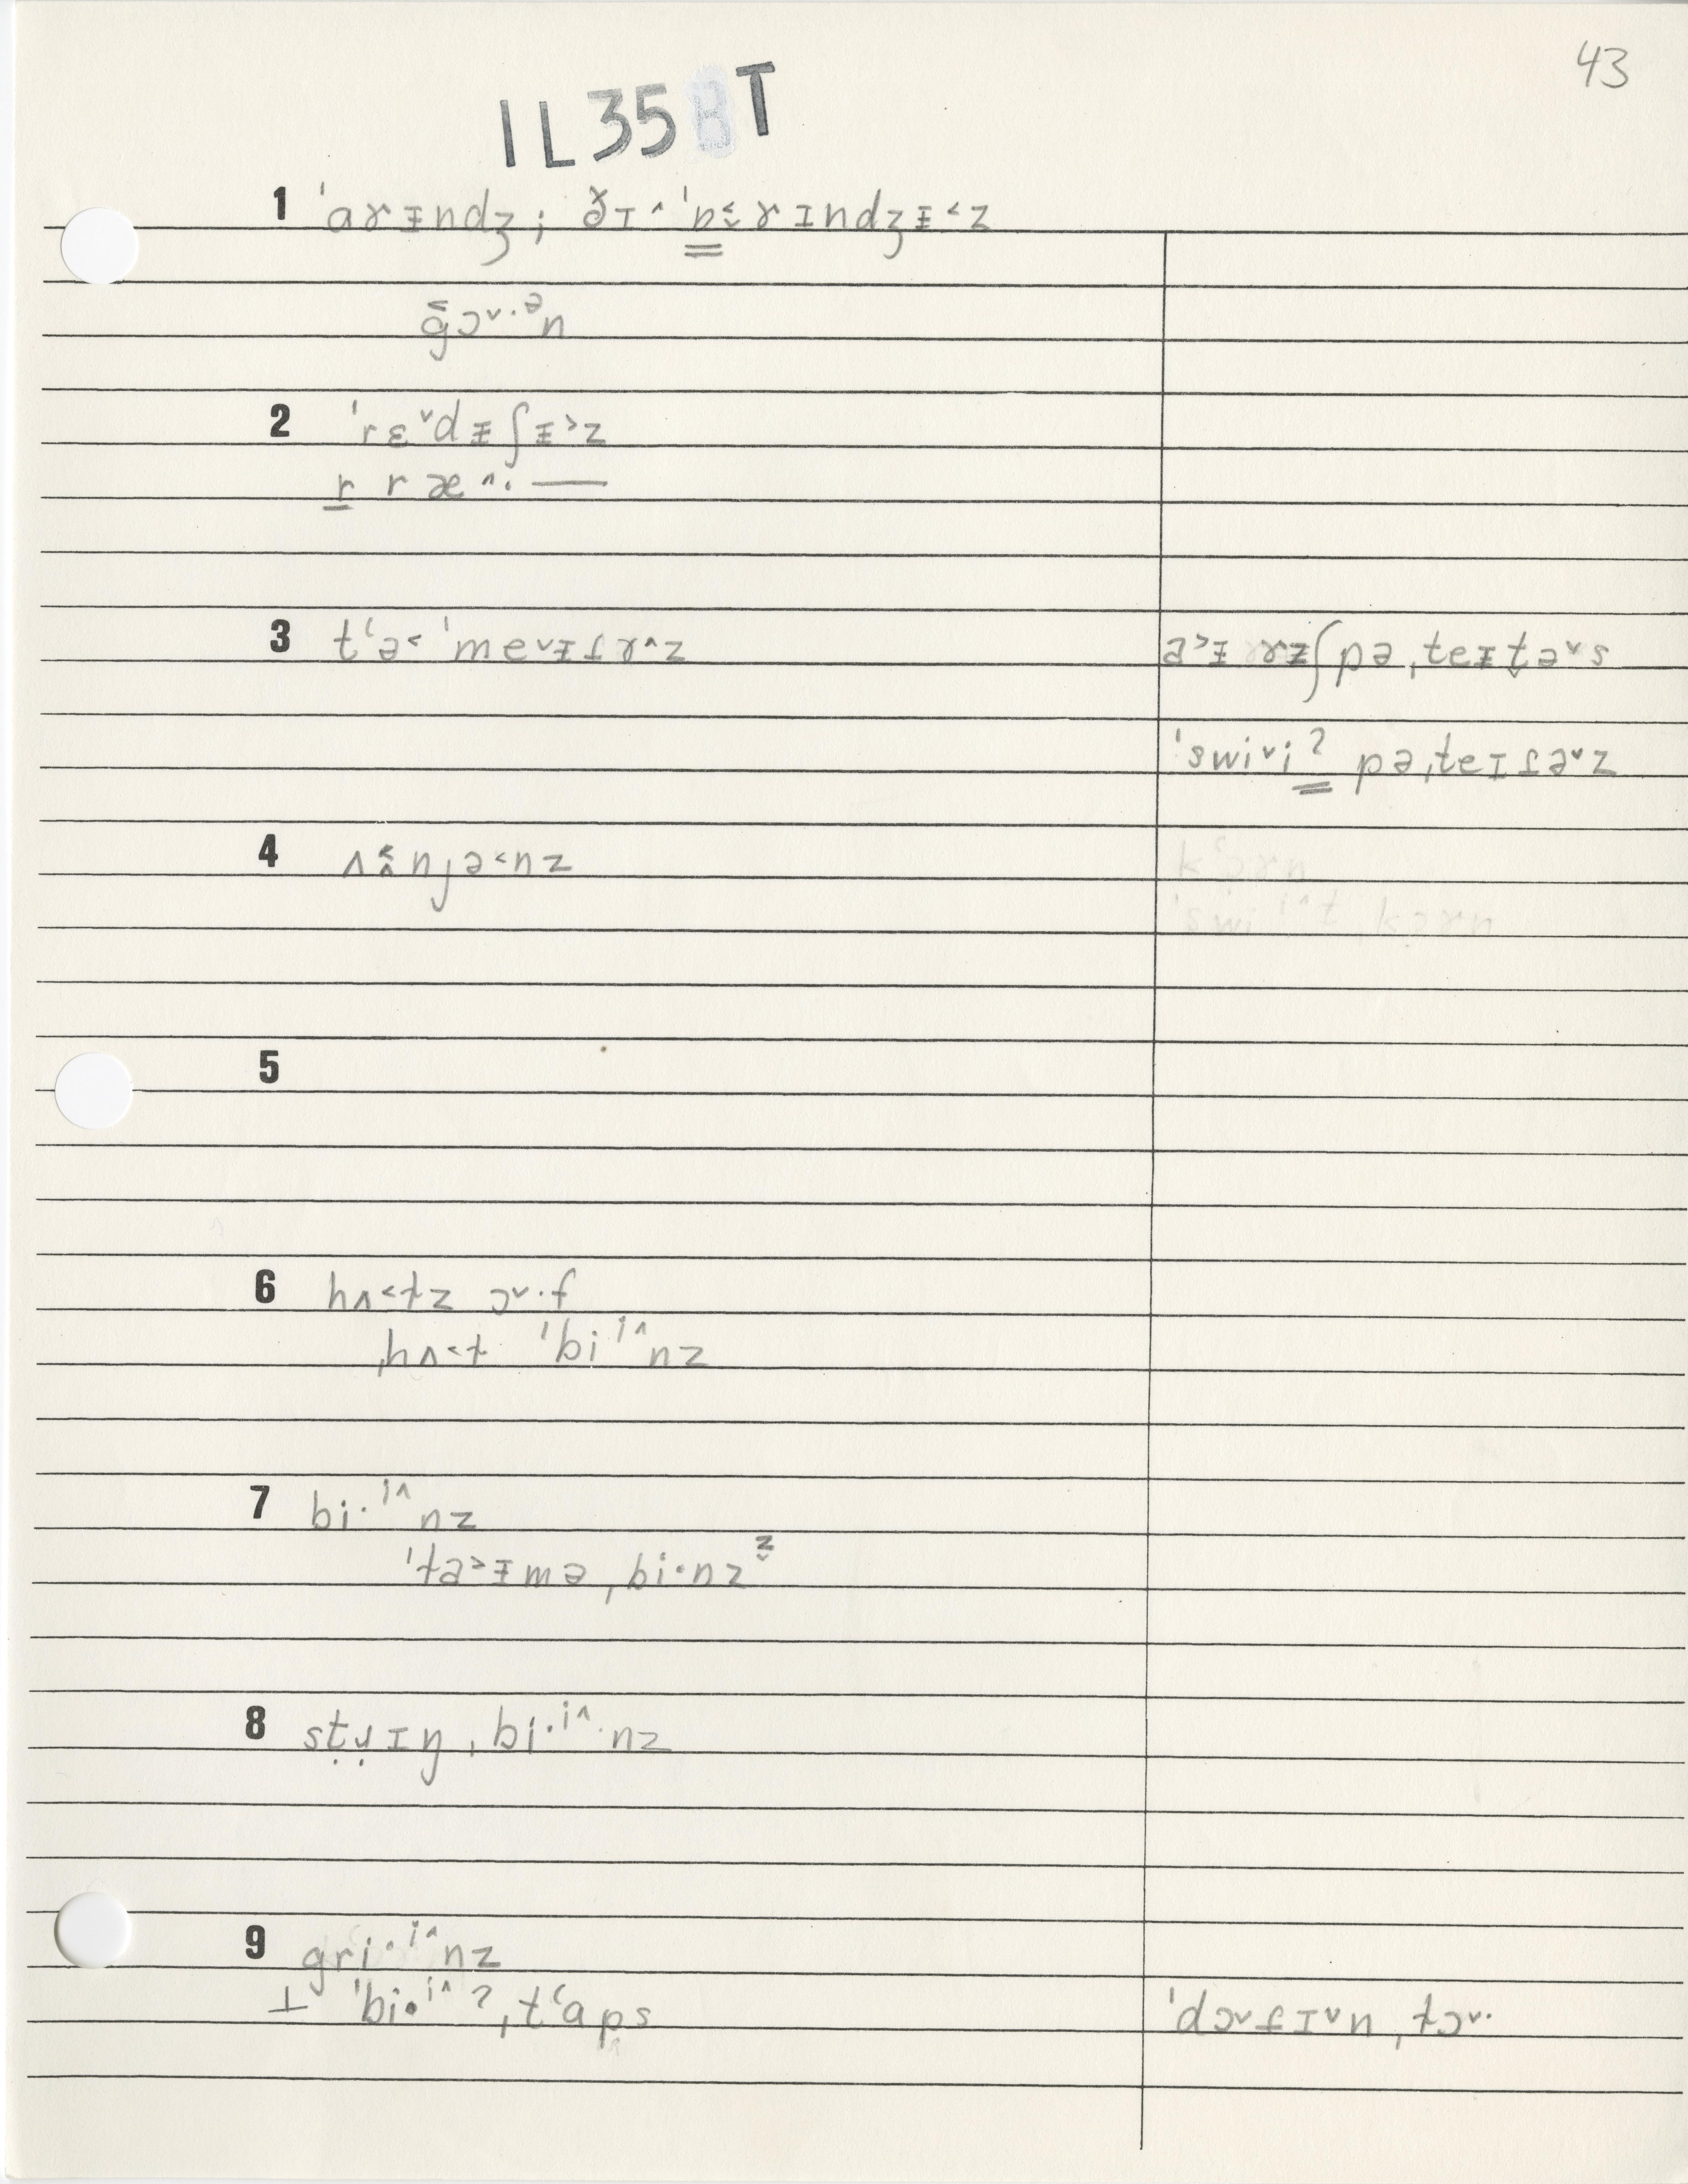 43
IL35BT
1 ˈaɤᵻndʒ; ð̥ɪ^ ˈɒ̬˂ɤɪndʒᵻ˂z
ḡɔ˅·ᵊn
2 ˈrɛ˅dᵻʃᵻ˃z
r r æ^· —
3 tʻə˂ ˈme˅ᵻɾɤ^z
a˃ᵻɤᵻʃ pəˌteᵻt̬ə˅s
ˈswi˅iʔ pəˌteɪɾə˅z
4 ʌ̭˂njə˂nz
kʻɔɤn
ˈswi iʌt ˌkɔɤn
5
6 hʌ˂tz ɔ˅·f
ˌhʌ˂t ˈbi iʌnz
7 bi· iʌnz
ˈta˃ᵻmə ˌbi·nz z̬
8 sṭɹ̣ɪŋ ˌbi· iʌnz
9 gri· iʌnz
⊥ ˈbi· iʌ ʔ ˌtʻaps
ˈdɔ˅ɾɪ˅n ˌtɔ˅·